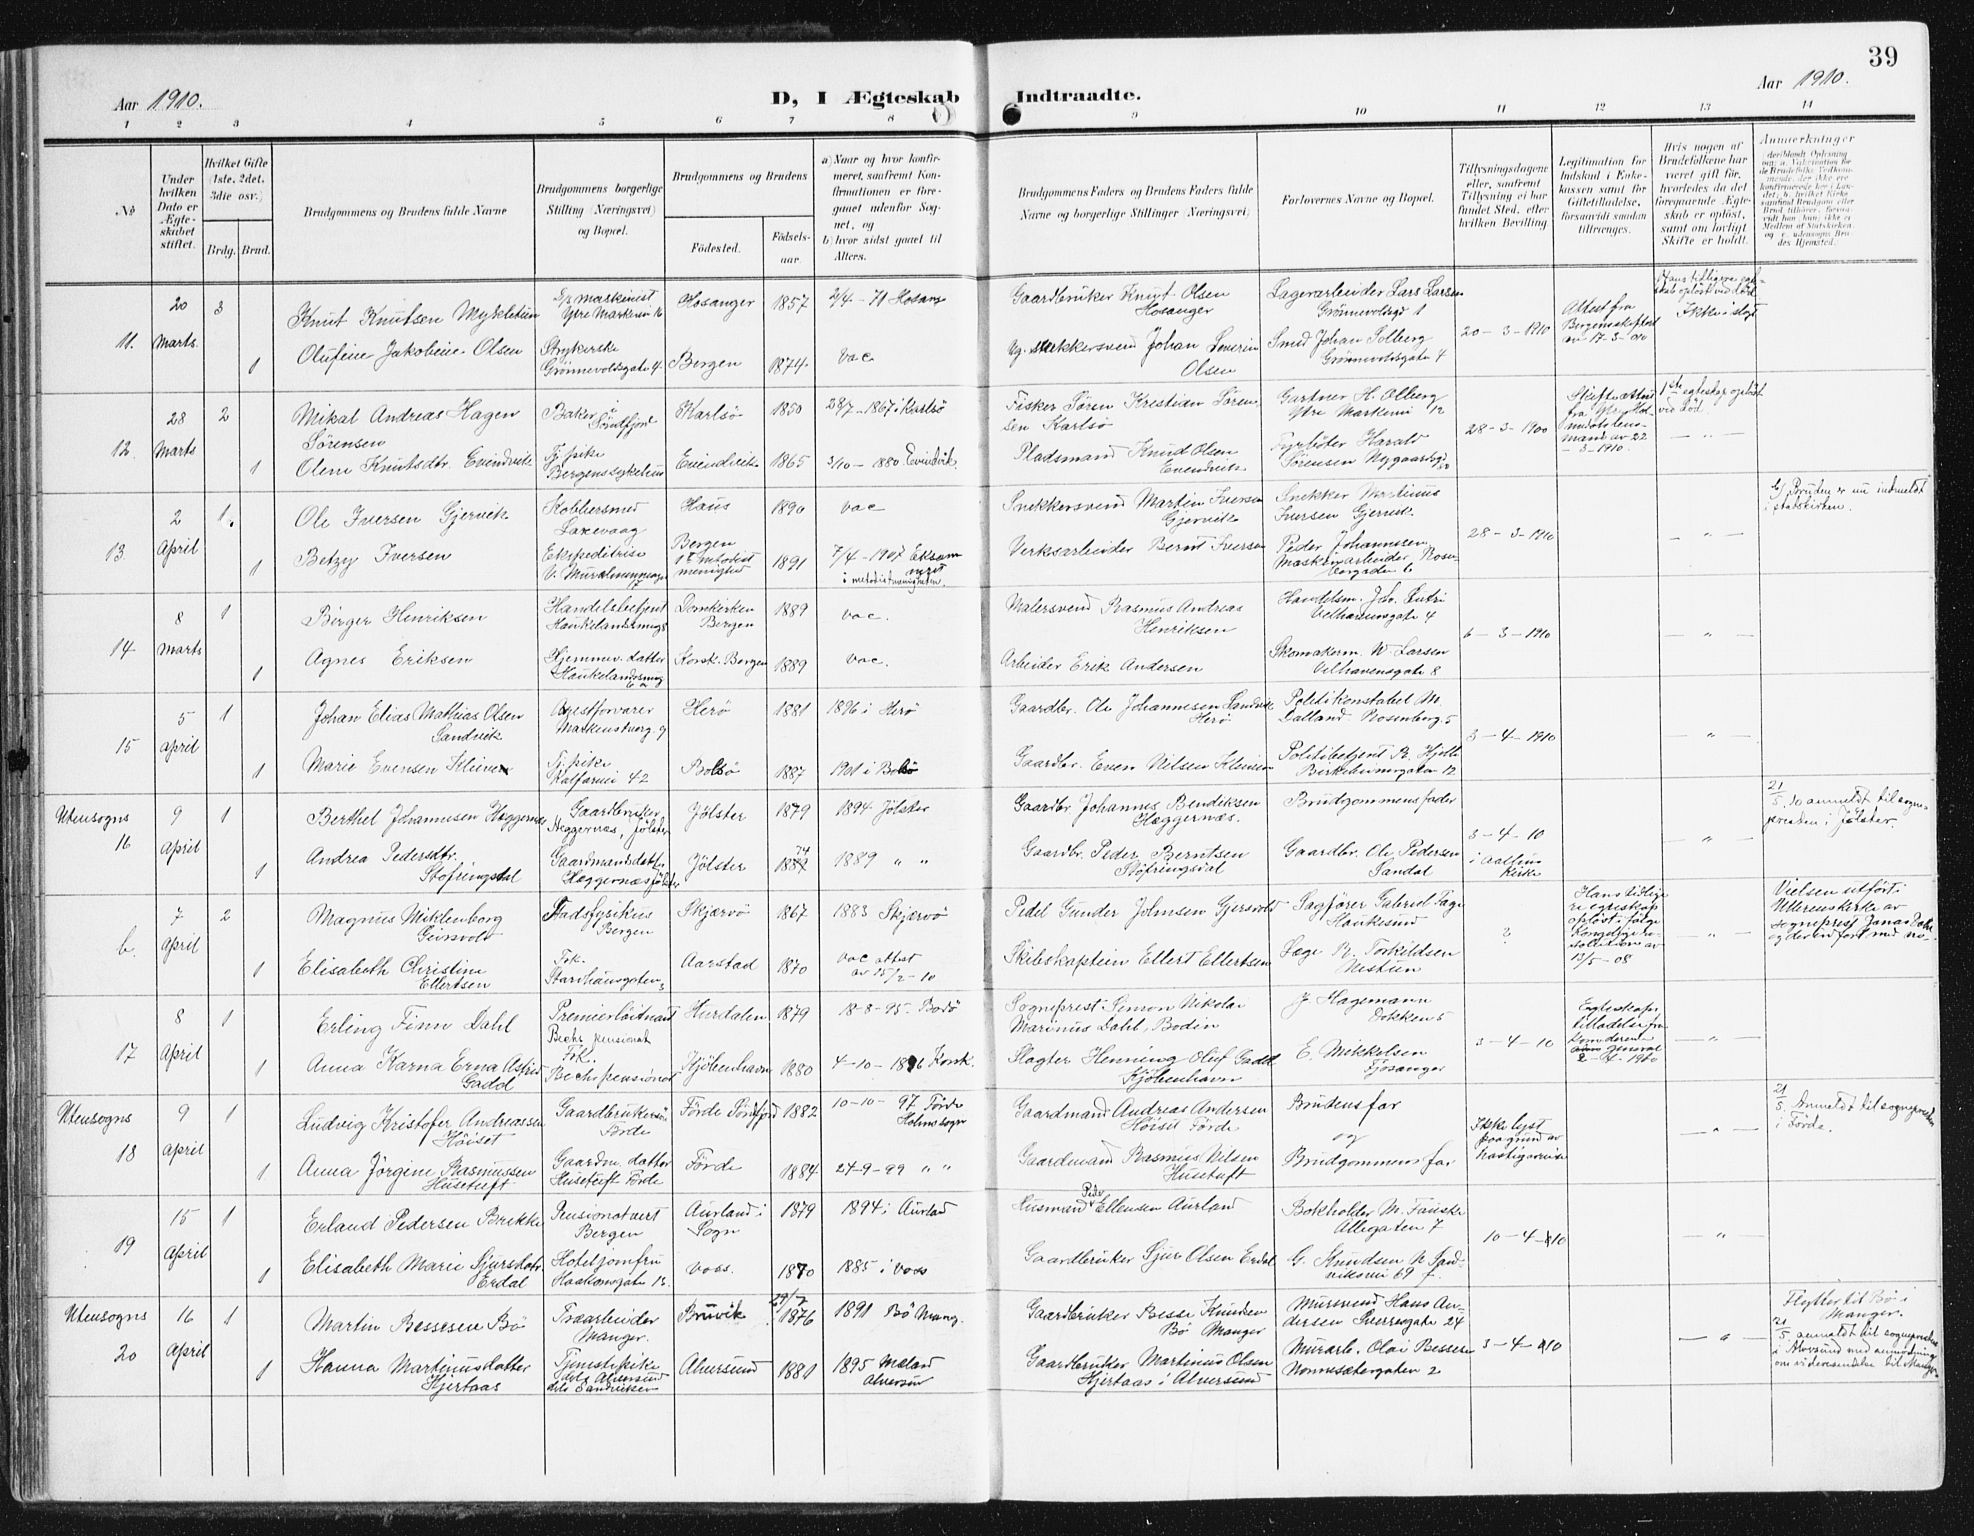 39
Aar 1910.
D, I Ægteskab Indtraadte.
Aar 1910.
1 2 3 4 5 6 7 8 9 10 11 12 13 14
No
Under hvilken Dato er Ægteskabet stiftet.
Hvilket Gifte (1ste, 2det, 3die osv.)
Brdg. Brud.
Brudgommens og Brudens fulde Navne
Brudgommens borgerlige Stilling (Næringsvei) og Bopæl.
Brudgommens og Brudens
Fødested.
Fødselsaar.
a) Naar og hvor konfirmeret, saafremt Konfirmationen er foregaaet udenfor Sognet, og
b) hvor sidst gaaet til Alters.
Brudgommens Faders og Brudens Faders fulde Navne og borgerlige Stillinger (Næringsvei)
Forlovernes Navne og Bopæl.
Tillysningsdagene eller, saafremt Tillysning ei har fundet Sted, efter hvilken Bevilling.
Legitimation for Indskud i Enkekassen samt for Giftetilladelse, forsaavidt saadan tiltrænges.
Hvis nogen af Brudefolkene har været gift før, hvorledes da det foregaaende Ægteskab er opløst, samt om lovligt Skifte er holdt.
Anmærkninger
11. 20 Marts 3
Knut Knutsen Mykletun
Maskinist
Ytre Markevei 16
Hosanger 1857
2/4 - 71 Hosang
Gaardbruker Knut Olsen
Hosanger
Lagerarbeider Lars Larsen
Grønnevoldsgt 1
20-3-1910
Attest fra
Bergens skifteret
av 17-3-10
1
Olufine Jakobine Olsen
Strykerske
Grønnevoldsgate 4.
Bergen 1874. vac
Johan Severin
Olsen
Smed Johan Solberg
Grønnevoldsgate 4
12. 28 Marts 2
Mikal Andreas Hagen
Sørensen
Baker i
Søndfjord
Karlsø 1850
28/7 - 1867 i Karlsø
Fisker Søren Kristian Sørensen
Karlsø
Gartner H. Olberg
Ytre Markevei 12
28-3-1900
1ste egteskap opløst
ved død.
1
Oline Knutsdtr. Evindvik
Tj. pike
Bergens sykehus
Evindvik 1865
3/10 - 1880 Evindvik.
Pladsmand Knud Olsen
Evendvik
Fyrbøter Harald
Sørensen Nygaardsgt
- " -
13 2 April 1.
Ole Iversen Gjervik
Kobbersmed
Laxevaag
Haus 1890 vac
Snekkersvend Martin Iversen
Gjervik
Snekker Martinus
Iversen Gjervik
28-3-1910
- " -
b) Bruden er nu indmeldt
i statskirken.
1
Betzy Iversen
Ekspeditrise
Bergen
1ste metodist
menighed
1891
7/4 - 1907
i metodistmenigheten.
Verksarbeider Bernt Iversen
Peder Johannesen
Maskinarbeider Rosenbergaden 6
14 8 Marts 1
Birger Henriksen
Handelsbetjent
Domkirken
Bergen
1889 vac.
Malersvend Rasmus Andreas
Henriksen
Velhavensgate 4
6-3-1910
- " -
1
Agnes Eriksen
Hjemmev. datter
Korsk. Bergen 1889 vac.
Arbeider Erik Andersen
Skomakerm. W Larsen
Velhavensgate 8
15 5 April 1
Johan Elias Mathias Olsen
Sandvik
Markensteverg 9
Herø 1881 1896 i Herø
Gaardbr. Ole Johannesen Sandvik
Herø
Politikonstabel M.
Dalland Rosenberg 5
3-4-1910
- " -
1
Marie Evensen Kleiven
Tj. pike
Kalfarvei 42
Bolsø 1887 1901 i Bolsø
Gaardbr. Even Nilsen Kleiven
Politibetjent B. Hjelle
Birkebeinergaten 12
Utensogns 16 9 April 1
Berthel Johannesen Heggernes
Gaardbruker
Heggernæs, Jølster
Jølster 1879 1894 Jølster
Gaardbr Johannes Bendiksen
Hæggernæs.
Brudgommens fader
3-4-10
i Aalhus
kirke
- " -
21/5. 10 anmeldt til sogne-
presten i Jølster.
1
Andrea Pedersdtr.
Stofringsdal
Gaardmandsdatter
Hæggernæs Jølster
Jølster 1874 1889 " "
Gaardbr. Peder Berntsen
Støfringsdal
Gaardbr. Ole Pedersen
Sandal
b. 7 April 2
Magnus Miklenborg
Geirsvold
Stadsfysikus
Bergen
Skjærvø 1867 1883 Skjærvø
Pedel Gunder Johnsen Gjersvold
Sagfører Gabriel Fage
Haukesund
?
Hans tidlige-
re egteskap
opløst i følge
Kongelig re-
solution av
13/5-08
- " -
Vielsen utført i
Ullernskirke av
sogneprest Jonas Dahl
1
Elisabeth Christine
Ellertsen
Frk.
Aarstad 1870
vac attest
av 15/2-10
Skibskaptein Ellert Ellertsen
Læge R. Torkildsen
Nestun
17 8 April 1
Erling Finn Dahl
Premierløitnant
Bechs pensionat
Hurdalen 1879 18-8-95. Bodø
Sogneprest Simon Nikolai
Marinus Dahl, Bodin
J. Hagemann
Dokken 5
3-4-10
Egteskaps
tilladelse fra
general
2-4-1910
- " -
1
Anna Karna Erna Astrid
Gadd
Frk.
Bechs pensionat
Kjøbenhavn 1880
Slagter Henning Oluf Gadd
Kjøbenhavn
E. Mikkelsen
Fjøsanger
Utensogns 18 9 April 1
Ludvig Kristofer Andreassen
Höiset
Gaardbrukersøn
Förde
Förde Söndfjord 1882
10-10-97 Förde
Holmsogn
Gaardmand Andreas Andersen
Höiset Förde
Brudens far
og
Ikke lyst
paa grund av
hastigreise
- " -
21/5. Anmeldt til sognepresten
i Förde.
1
Anna Jörgine Rasmussen
Husetuft
Gaardm. datter
Husetuft Förde
Förde 1884 27-9-99 " "
Gaardmand Rasmus Nilsen
Husetuft
Brudgommens far
19 15 April 1
Erland Pedersen Brekke
Pensionatvert
Bergen
Aurland i
Sogn
1879 1894 i Aurlad
Husmand Peder Ellensen Aurland
Bokholder M. Fauske
Allegaten 7
10-4-10
- " -
1
Elisabeth Marie Sjursdatr
Erdal
Hoteljomfru
Haakonsgate 13.
Voss. 1870 1885 i Voss
Gaardbruker Sjur Olsen Erdal
G. Knudsen N Sand-
viksvei 69 f.
Utensogns 20 16 April 1
Martin Bessesen Bø
Traarbeider
Manger.
Bruvik
29/7 1876
1891 Bø Mang.
Gaardbruker Besse Knudsen
Bø Manger
Mursvend Hans An-
dersen Sverresgate 24
3-4-10
- " -
Flytter til Bø i
Manger.
21/5. anmeldt til sognepresten
i Alversund med anmodning
om videresendelse til Manger
1
Hanna Martinusdatter
Hjertaas
Tjenestepike
Alversund 1881
1895 Mæland
Alversun
Gaardbruker Martinus Olsen
Hjertaas i Alversund
Murarb. Olai Bessesen
Nonnesætergaten 2